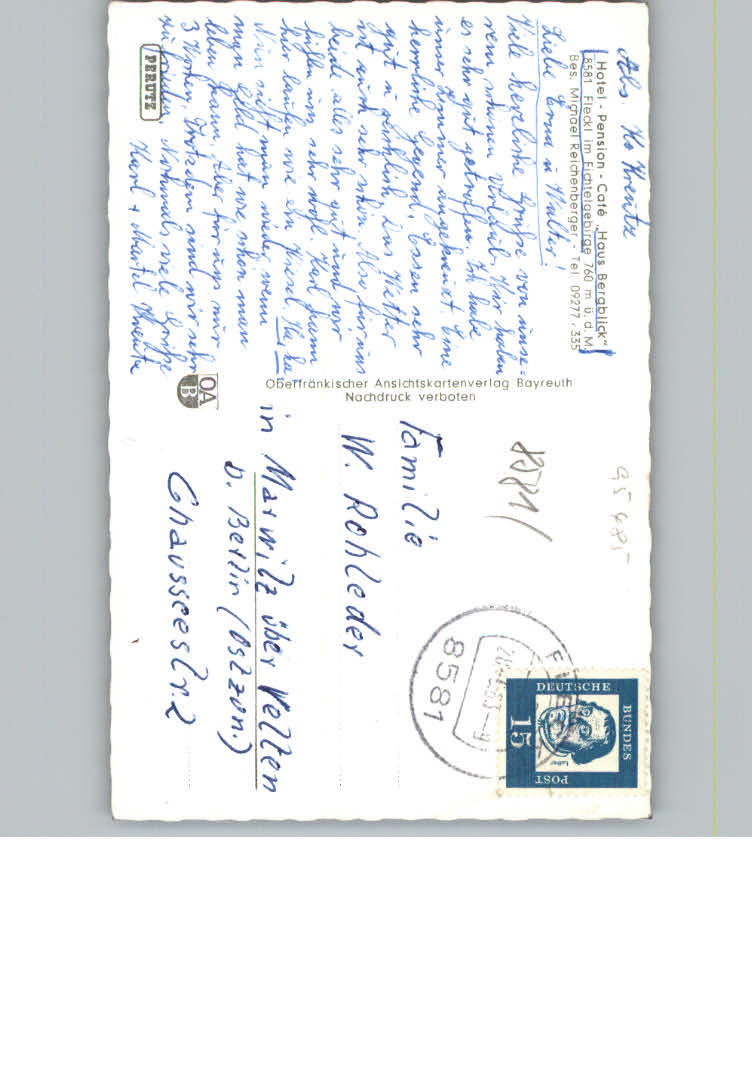 Abs. K. Kreutz
Hotel - Pension - Café „Haus Bergblick“
8581 Fleckl im Fichtelgebirge 760 m ü. d. M.
Bes. Michael Reichenberger - Tel. 09277 / 335
Liebe Erna u. Walter!
Viele herzliche Grüße von unse-
rem schönen Urlaub. Wir haben
es sehr gut getroffen. Ich habe
immer Zimmer Eine
herrliche Gegend, Essen sehr
gut u. reichlich. Das Wetter
ist auch sehr schön. Also für uns
beide alles sehr gut und wir
fühlen uns sehr wohl. Karl kann
hier laufen wie ein Wiesel Ha, ha
Nun nützt man viel, wenn
man Geld hat wie schon man
leben kann. Aber für uns nur
3 Wochen. Trotzdem sind wir sehr
zufrieden. Nochmals viele Grüße
Karl + Martel Kreutz
PERUTZ
Oberfränkischer Ansichtskartenverlag Bayreuth
Nachdruck verboten
OA
B
95485
8581/
Familie
W. Rohleder
in Marwitz über Velten
b. Berlin (Ostzon.)
Chausseestr. 2
8581
DEUTSCHE
BUNDES
POST
15
Luther